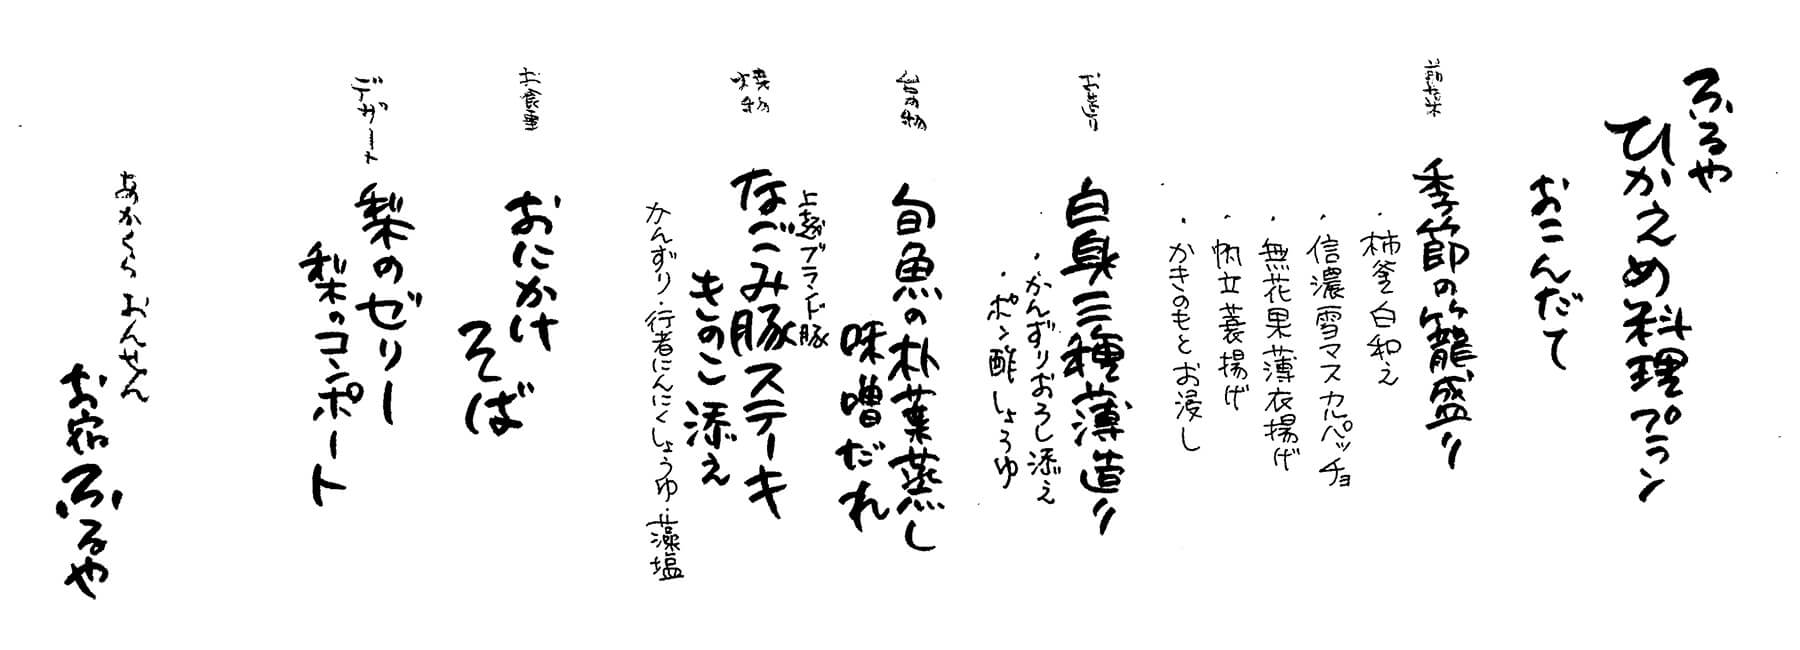 ふるや
ひかえめ料理プラン
おこんだて
前菜
季節の籠盛り
・柿釜白和え
・信濃雪マスカルパッチョ
・無花果薄衣揚げ
・帆立蓑揚げ
・かきのもとお浸し
お造り
白身三種薄造り
・かんずりおろし添え
・ポン酢しょうゆ
台の物
旬魚の朴葉蒸し
味噌だれ
焼物
上越ブランド豚
なごみ豚ステーキ
きのこ添え
かんずり・行者にんにくしょうゆ・藻塩
お食事
おにかけ
そば
デザート
梨のゼリー
梨のコンポート
あかくら おんせん
お宿ふるや